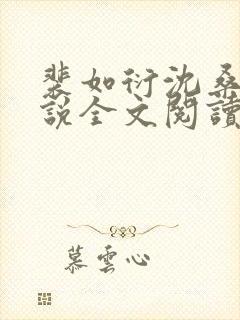 裴如衍沈桑
說全文閱讀
慕雲心